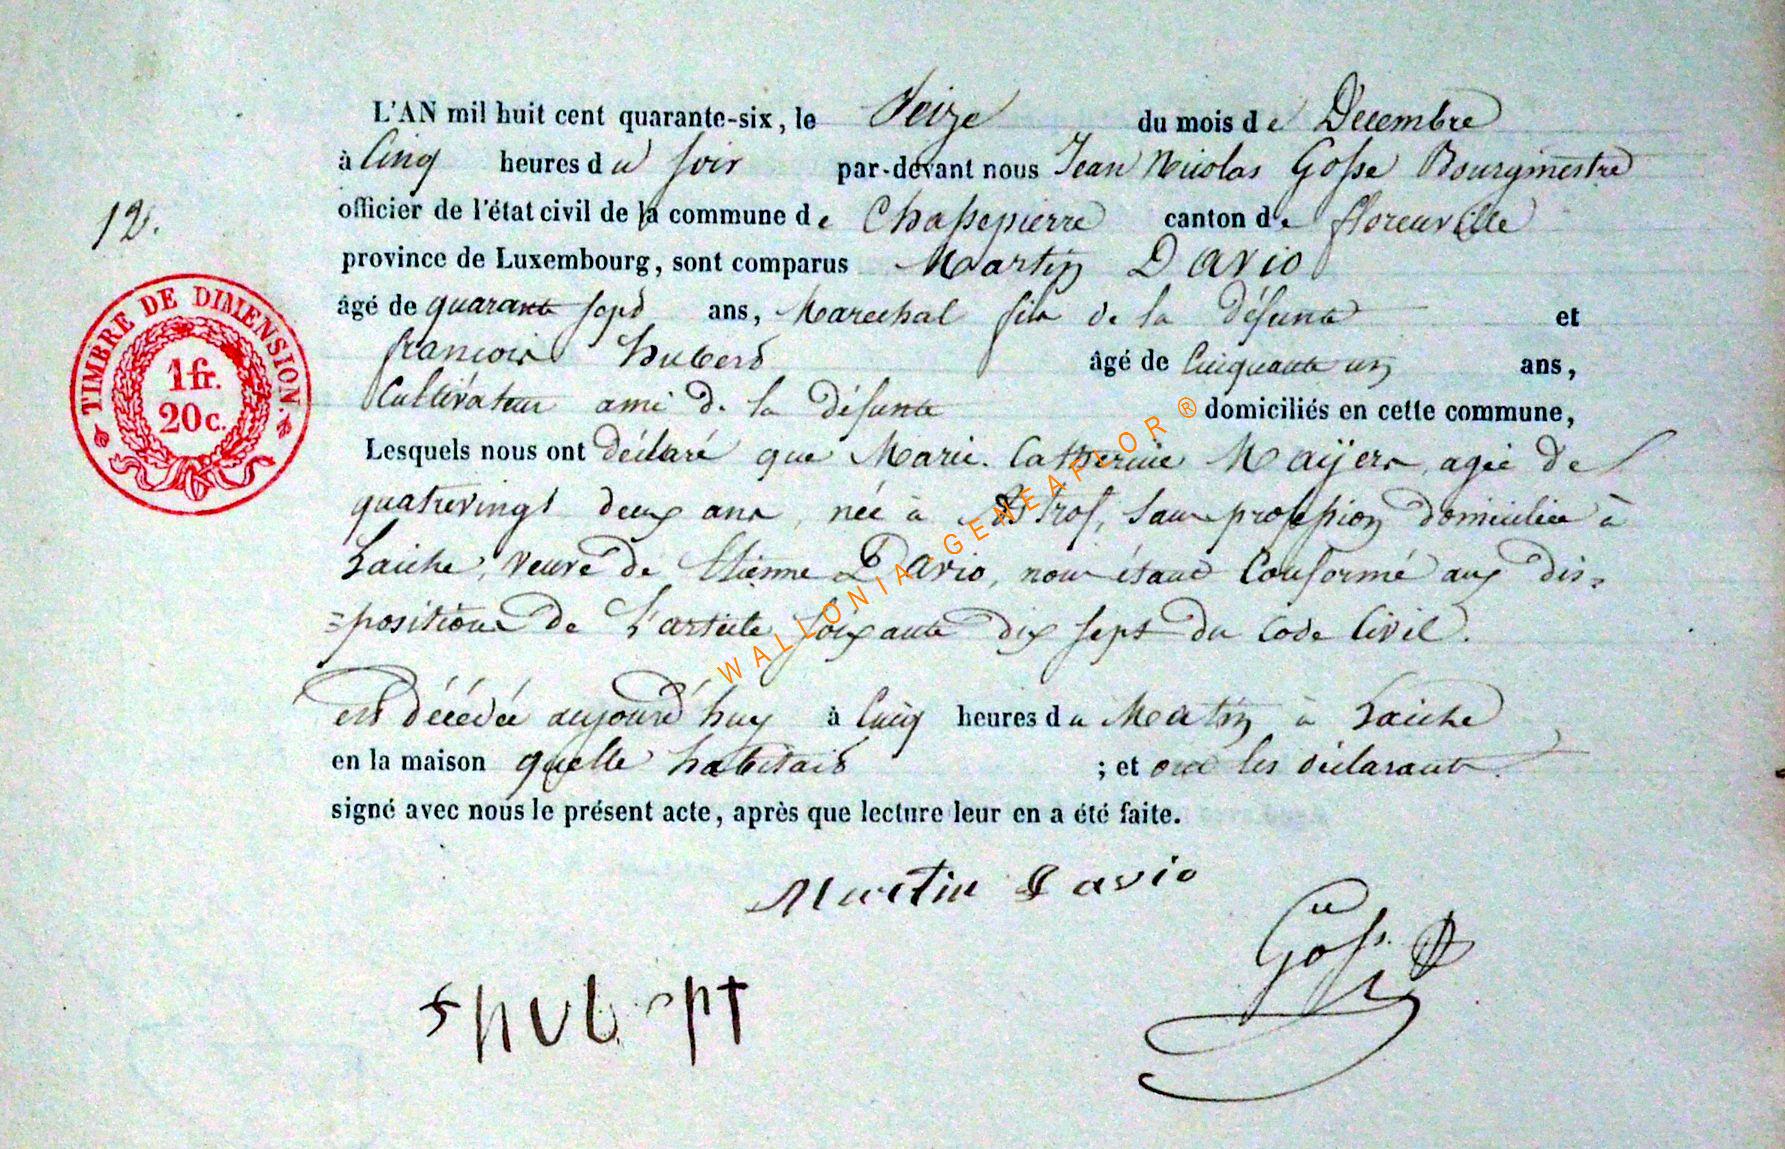 L'AN mil huit cent quarante-six, le Seize du mois de Décembre
à Cinq heures du soir par-devant nous Jean Nicolas Gosse Bourgmestre
officier de l'état civil de la commune de Chassepierre canton de florenville
12.
province de Luxembourg, sont comparus Martin Davio
âgé de quarante sept ans, Marechal fils de la défunte et
TIMBRE DE DIMENSION.
1 fr.
20 c.
françois hubert âgé de Cinquante un ans,
Cultivateur ami de la défunte domiciliés en cette commune,
Lesquels nous ont déclaré que Marie Catherine Mayers, agée de
quatrevingt deux ans, née à trof, sans profession domiciliée à
Laiche, veuve de Etienne Davio, nous étant Conformé aux dis=
=positions de L'article soixante dix sept du Code Civil.
est décédée aujourd'huy à Cinq heures du Matin à Laiche
en la maison quelle habitait ; et ont les déclarants
signé avec nous le présent acte, après que lecture leur en a été faite.
WALLONIA-GENEAFLOR ®
Martin Davio
Gosse
f hubert